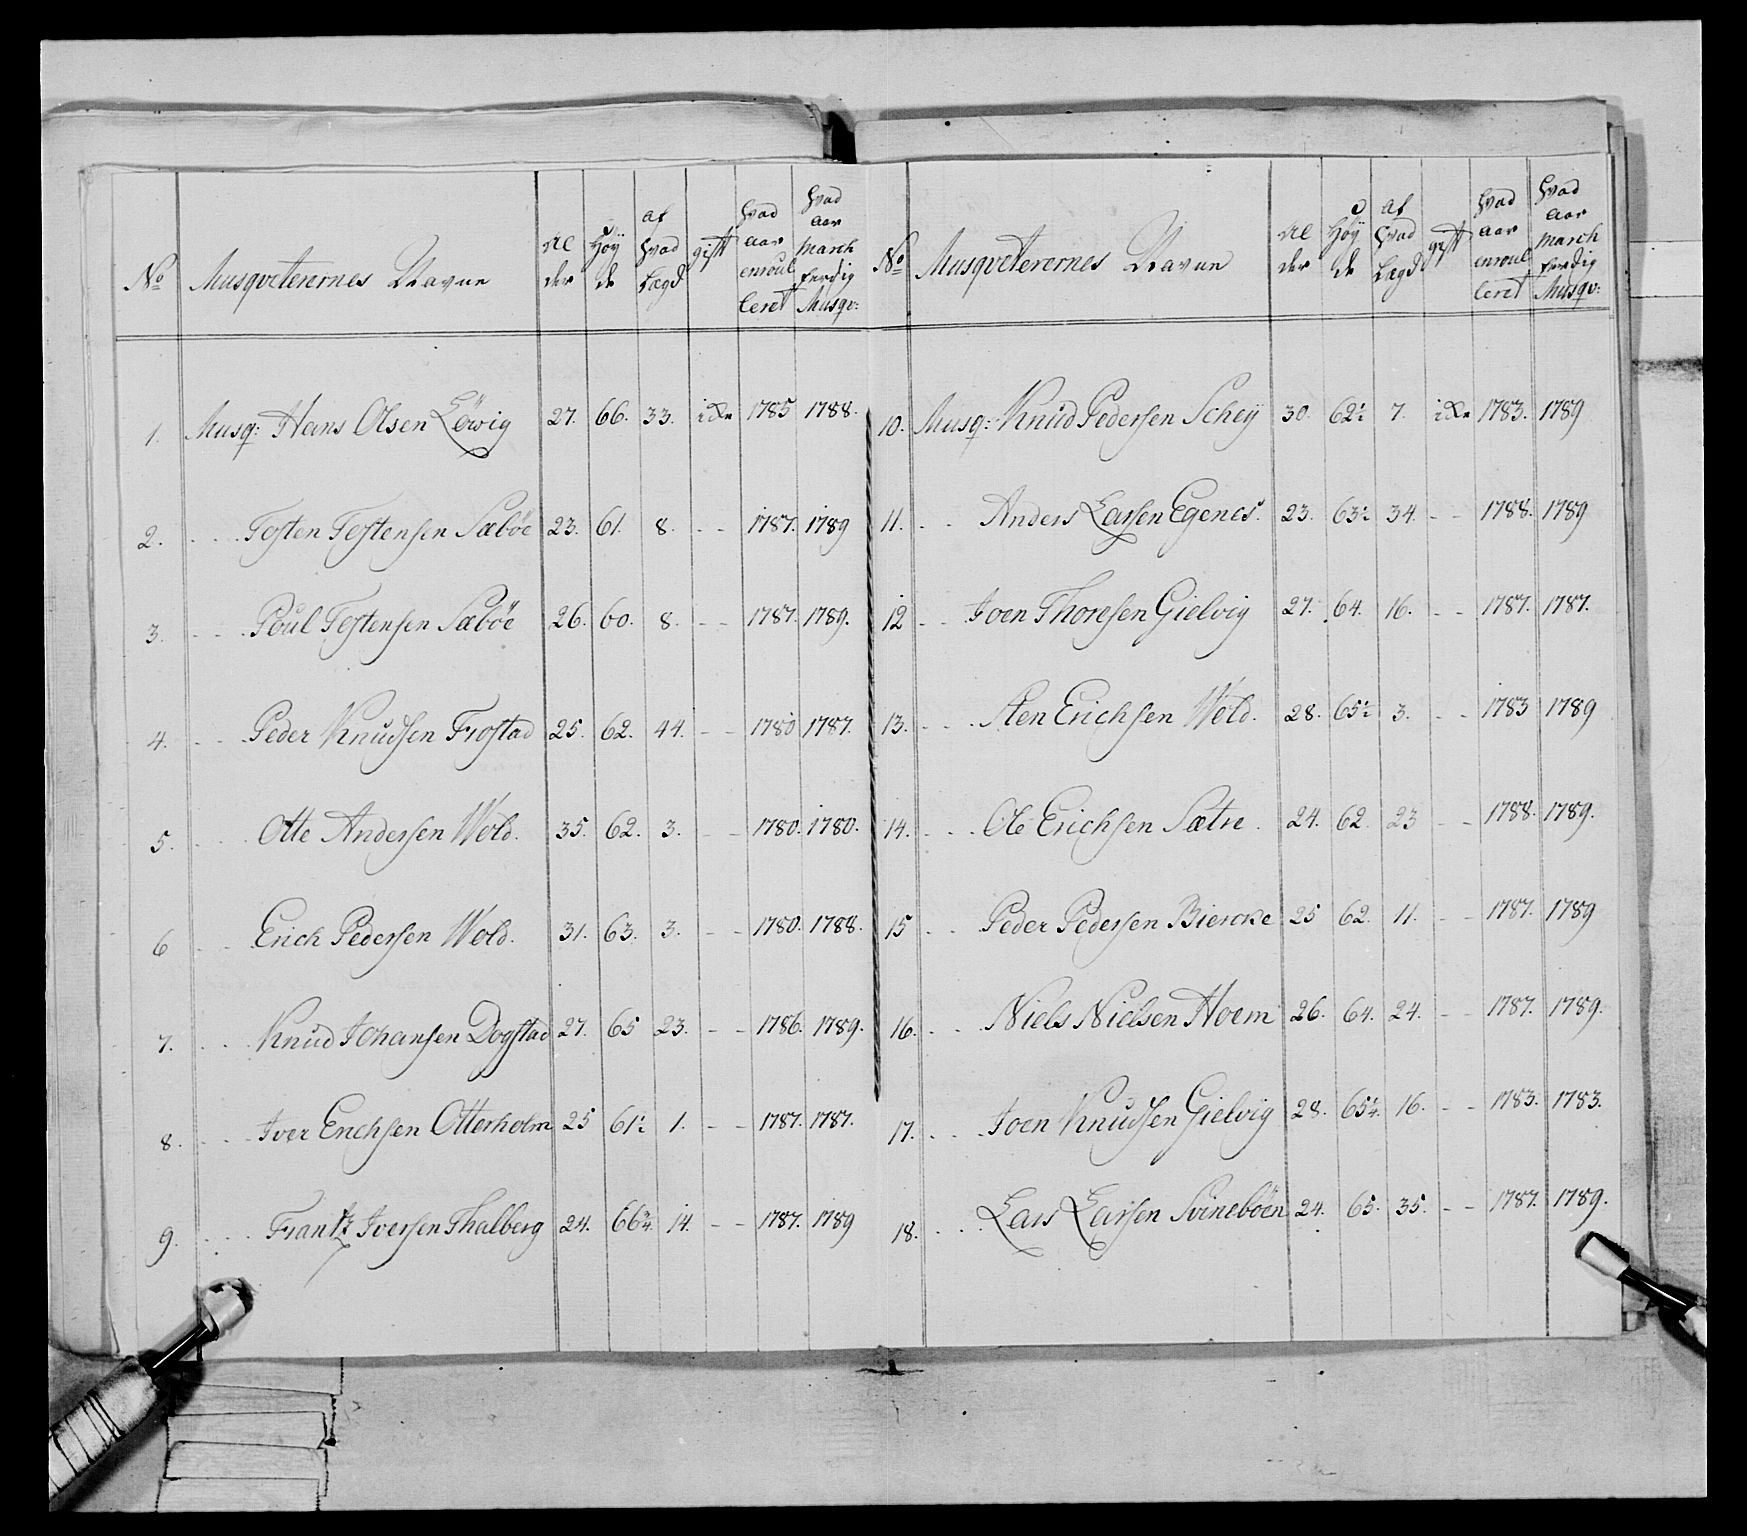 No Musqveterernes Navne Alder Höyde af hvad Lægd gift hvad aar enroulleret hvad aar march ferdig Musqv:
1. Musq: Hans Olsen Löwig 27. 66. 33. ikke 1785 1788.
2. - - - Tosten Tostensen Sæböe 23. 61. 8. - - 1787. 1789
3. - - - Poul Tostensen Sæböe 26. 60. 8. - - 1787. 1789.
4. - - - Peder Knudsen Frostad 25. 62. 44. - - 1780 1787.
5. - - - Otte Andersen Wold. 35. 62. 3. - - 1780. 1780.
6 - - - Erich Pedersen Wold. 31. 63. 3. - - 1780. 1788.
7. - - - Knud Johansen Dogstad 27. 65 23. - - 1786. 1789.
8. - - - Iver Erichsen Otterholm 25 61½ 1. - - 1787. 1787.
9. - - - Frantz Iversen Thalberg 24. 66¾ 14. - - 1787. 1789
No Musqveterernes Navne Alder Höyde af hvad Lægd gift hvad aar enroulleret hvad aar march ferdig Musqv:
10. Musq: Knud Pedersen Schey 30. 62½ 7. ikke 1783. 1789
11. - - Anders Larsen Egenes. 23. 63½ 34. - - 1788. 1789
12 - - Joen Thoresen Gielvig 27. 64. 16. - - 1787. 1787.
13. - - - Sten Erichsen Wold. 28. 65½ 3. - - 1783 1789
14. - - - Ole Erichsen Sætre. 24. 62. 23 - - 1788. 1789.
15 - - Peder Pedersen Biercke 25 62. 11. - - 1787. 1789
16. - - Niels Nielsen Hoem 26. 64. 24. - - 1787. 1789.
17. - - - Joen Knudsen Gielvig 28. 65¼ 16. - - 1783. 1783.
18. - - Lars Larsen Svineböen 24. 65. 35. - - 1787. 1789.